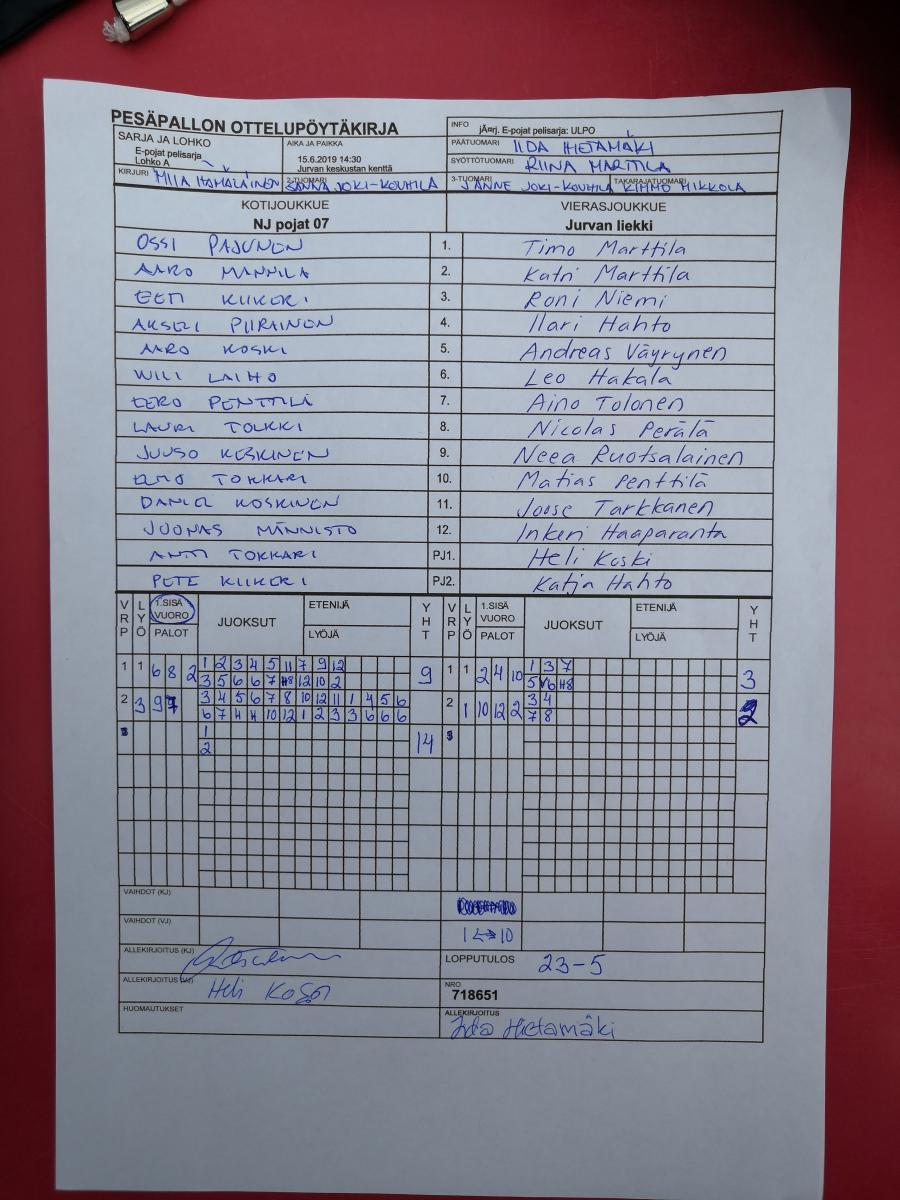 PESÄPALLON OTTELUPÖYTÄKIRJA
INFO jÃ¤rj. E-pojat pelisarja: ULPO
SARJA JA LOHKO
E-pojat pelisarja
Lohko A
AIKA JA PAIKKA
15.6.2019 14:30
Jurvan keskustan kenttä
PÄÄTUOMARI IIDA HIETAMÄKI
SYÖTTÖTUOMARI RIINA MARTTILA
KIRJURI MIIA HÄMÄLÄINEN 2-TUOMARI SANNA JOKI-KOUHILA 3-TUOMARI JANNE JOKI-KOUHILA TAKARAJATUOMARI KIMMO MIKKOLA
KOTIJOUKKUE VIERASJOUKKUE
NJ pojat 07 Jurvan liekki
OSSI PAJUNEN 1. Timo Marttila
AARO MANNILA 2. Katri Marttila
EETI KIIKERI 3. Roni Niemi
AKSELI PIIRAINEN 4. Ilari Hahto
AARO KOSKI 5. Andreas Väyrynen
WILI LAIHO 6. Leo Hakala
EERO PENTTILÄ 7. Aino Tolonen
LAURI TOLKKI 8. Nicolas Perälä
JUUSO KESKINEN 9. Neea Ruotsalainen
TOKKARI 10. Matias Penttilä
DANIEL KOSKINEN 11. Joose Tarkkanen
JOONAS MÄNNISTÖ 12. Inkeri Haaparanta
ANTTI TOKKARI PJ1. Heli Koski
PETE KIIKERI PJ2. Katja Hahto
VRP LYÖ 1.SISÄ VUORO PALOT JUOKSUT ETENIJÄ LYÖJÄ YHT VRP LYÖ 1.SISÄ VUORO PALOT JUOKSUT ETENIJÄ LYÖJÄ YHT
1 1 6 8 2 1 2 3 4 5 11 7 9 12 9 1 1 2 4 10 1 3 7 3
3 5 6 6 7 H8 12 10 2 5 6 H8
2 3 9 3 4 5 6 7 8 10 12 11 1 4 5 6 2 1 10 12 2 3 4 2
6 7 H H 10 12 1 2 3 3 6 6 6 7 8
3 1 14 3
2
VAIHDOT (KJ)
VAIHDOT (VJ) 1 ↔ 10
ALLEKIRJOITUS (KJ) LOPPUTULOS 23-5
ALLEKIRJOITUS (VJ) Heli Koski NRO 718651
HUOMAUTUKSET ALLEKIRJOITUS Iida Hietamäki